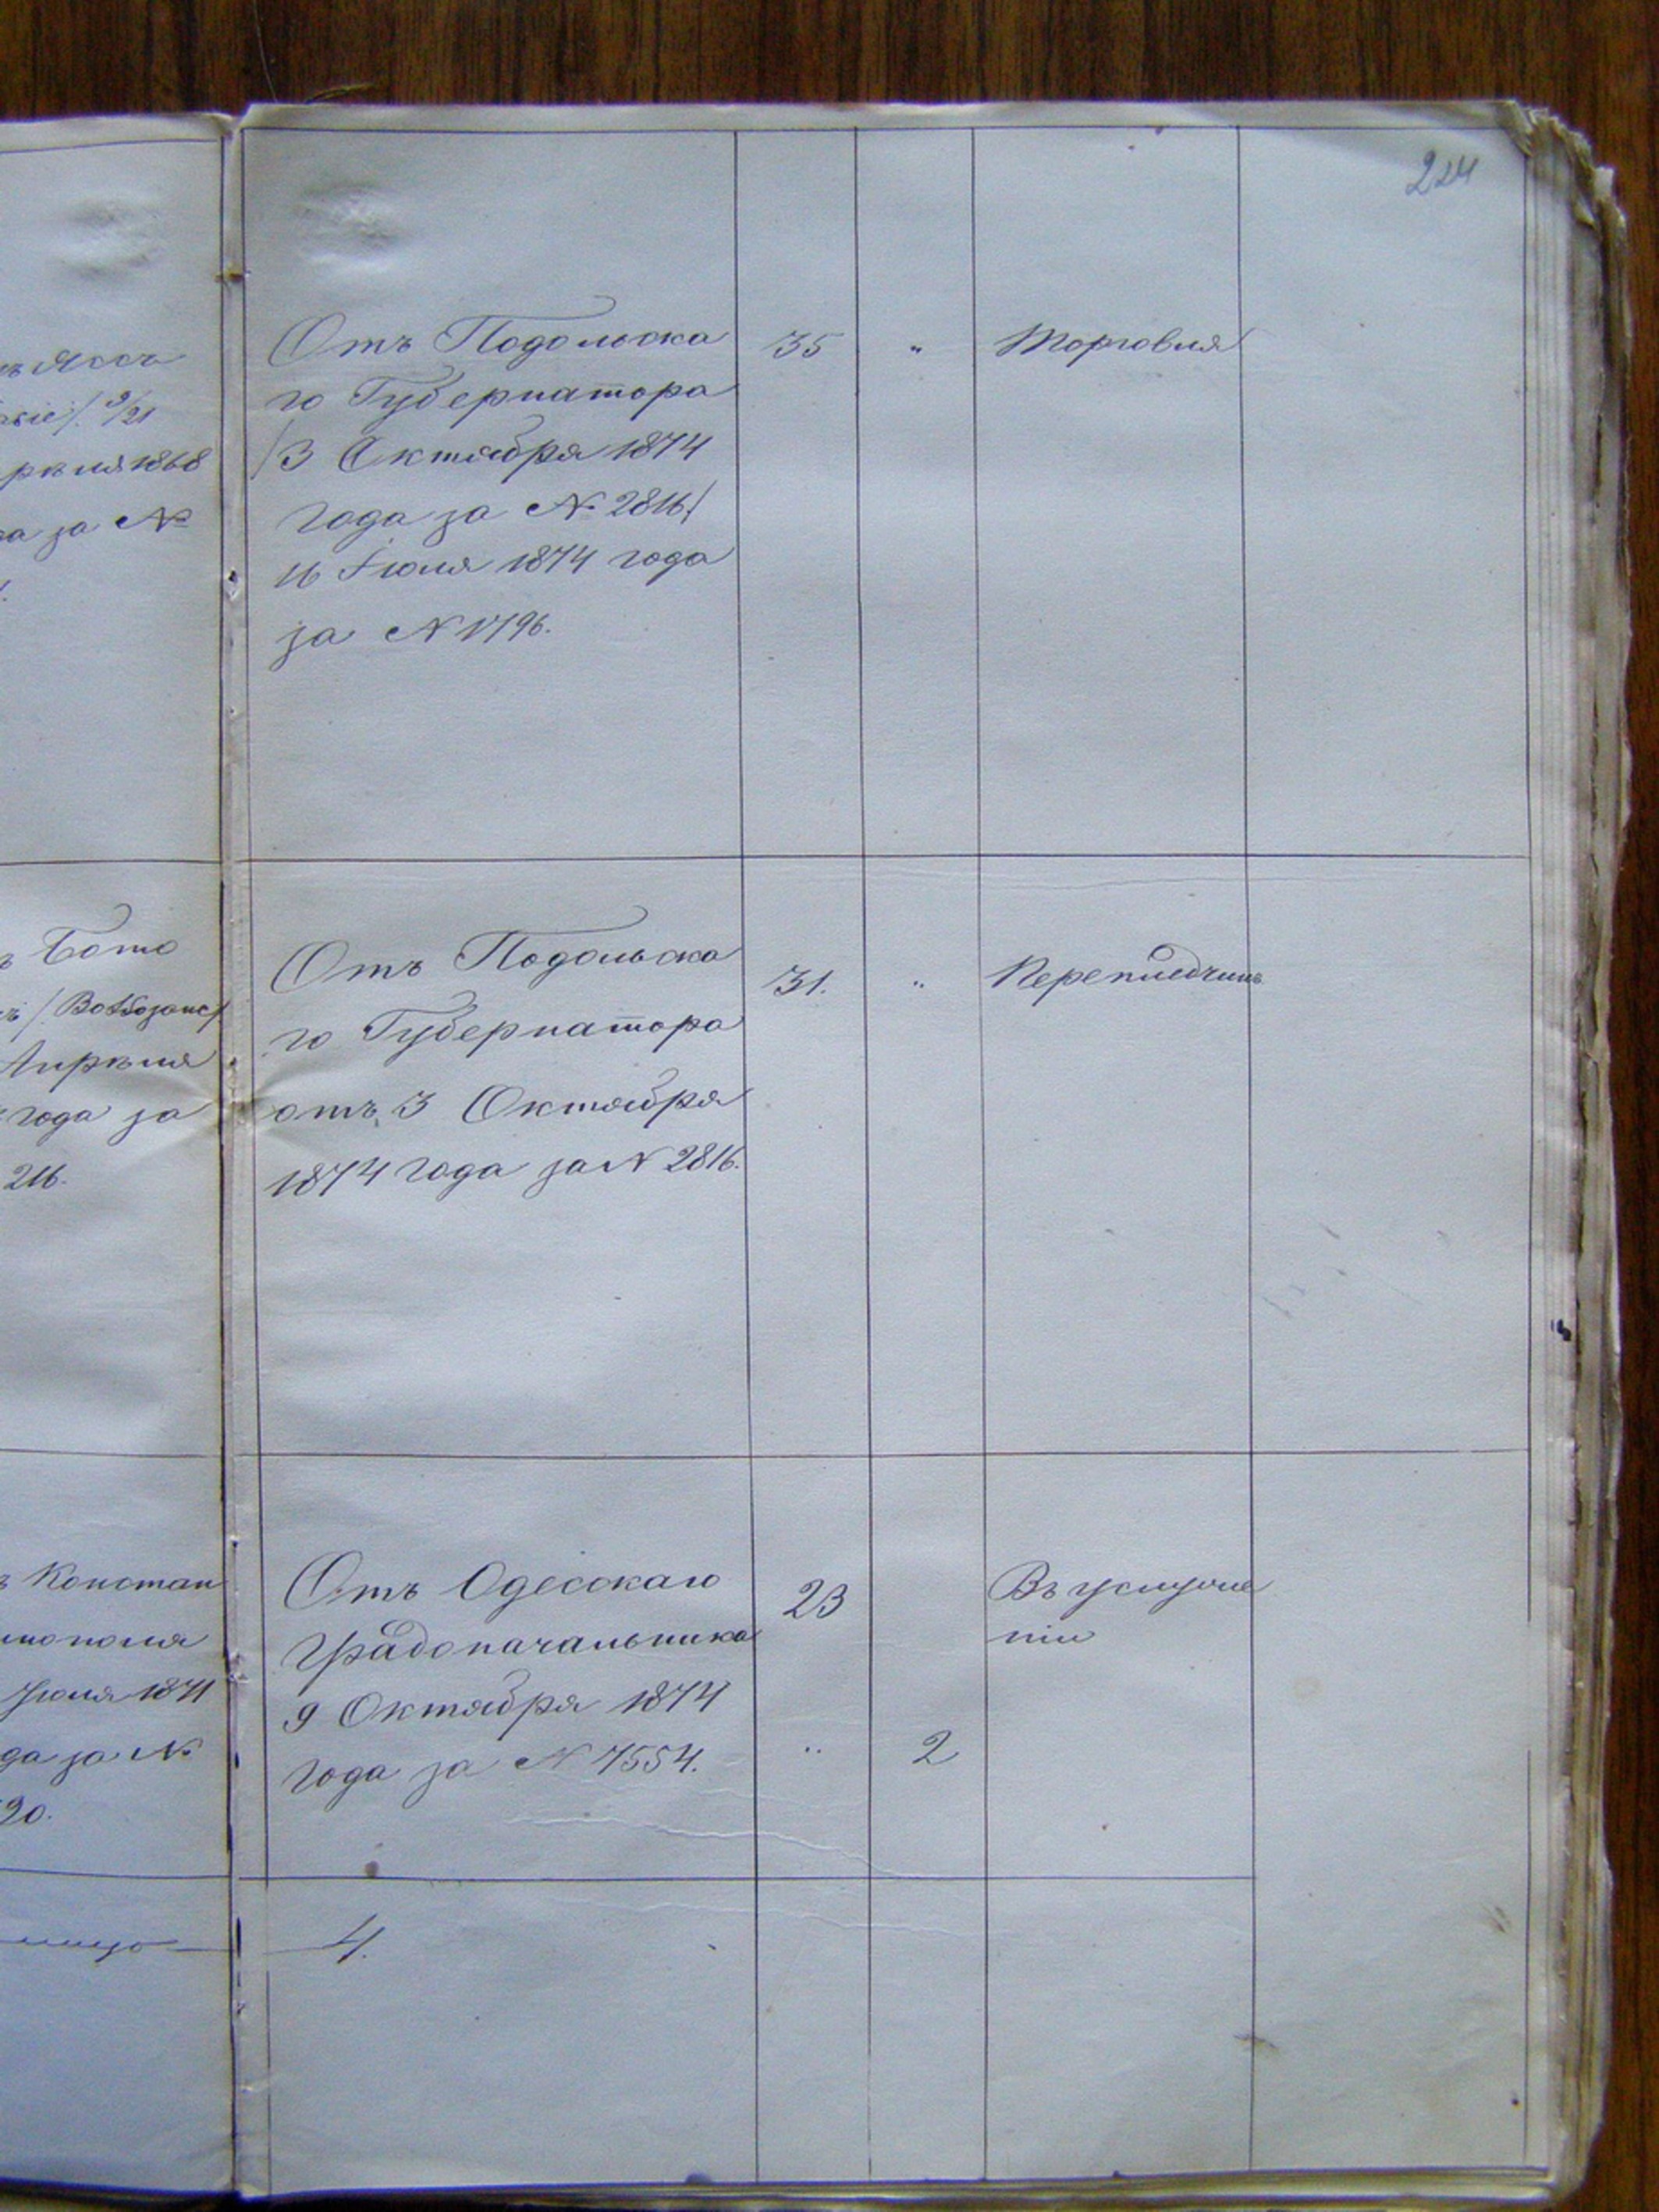 224
ъ Яссъ
9/21
рѣля 1868
за №
Отъ Подольска
го Губернатора
/3 Октября 1874
года за № 2816/
16 Іюля 1874 года
за № 1796.
35
"
Торговля
ъ Бото
Апрѣля
года за
216.
Отъ Подольска
го Губернатора
отъ 3 Октября
1874 года за № 2816.
31.
"
Переплетчикъ
ъ Констан
тинополя
Іюля 1871
да за №
20.
Отъ Одесскаго
Градоначальника
9 Октября 1874
года за № 7554.
23
"
2
Въ услуже
ніи
4.